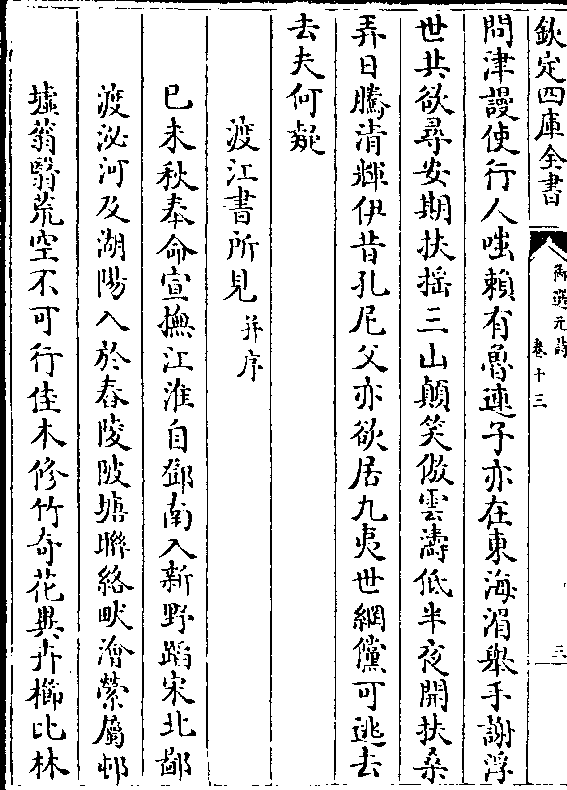 欽定四庫全書
御選元詩
卷十三
三
問津謾使行人嗤賴有魯連子亦在東海湄舉手謝浮
世共欲尋安期扶搖三山顛笑傲雲濤低半夜開扶桑
弄日騰清輝伊昔孔尼父亦欲居九夷世網儻可逃去
去夫何疑
渡江書所見并序
己未秋奉命宣撫江淮自鄧南入新野蹈宋北鄙
渡泌河及湖陽入於舂陵陂塘聯絡畎澮縈屬邨
墟蓊翳荒空不可行佳木修竹奇花異卉櫛比林